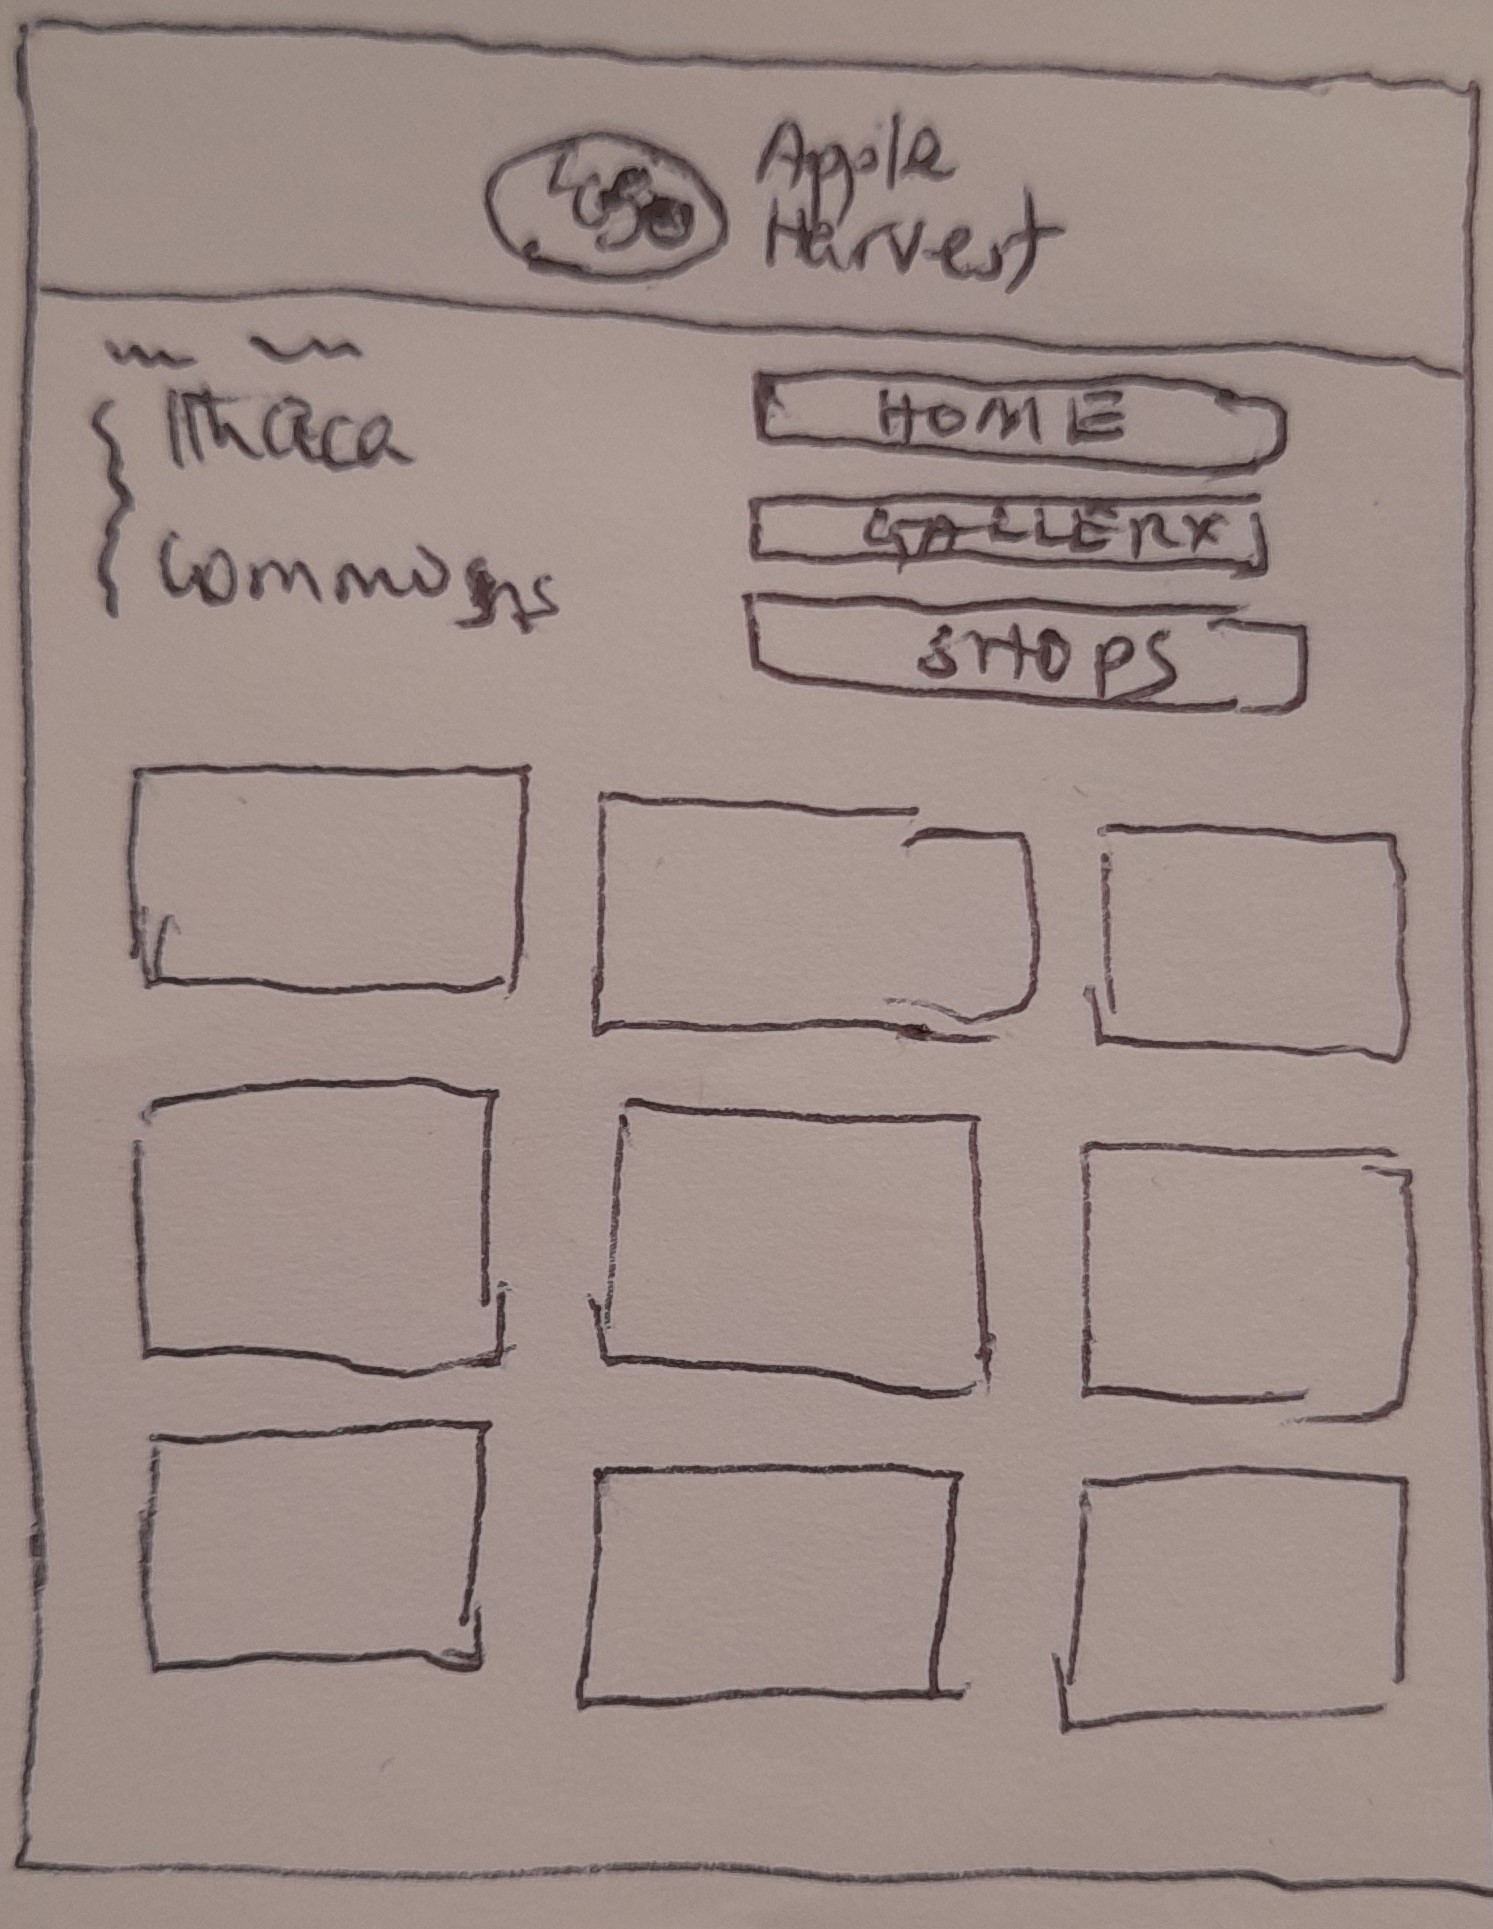 Logo
Apple
Harvest
Ithaca
Commons
HOME
GALLERY
SHOPS